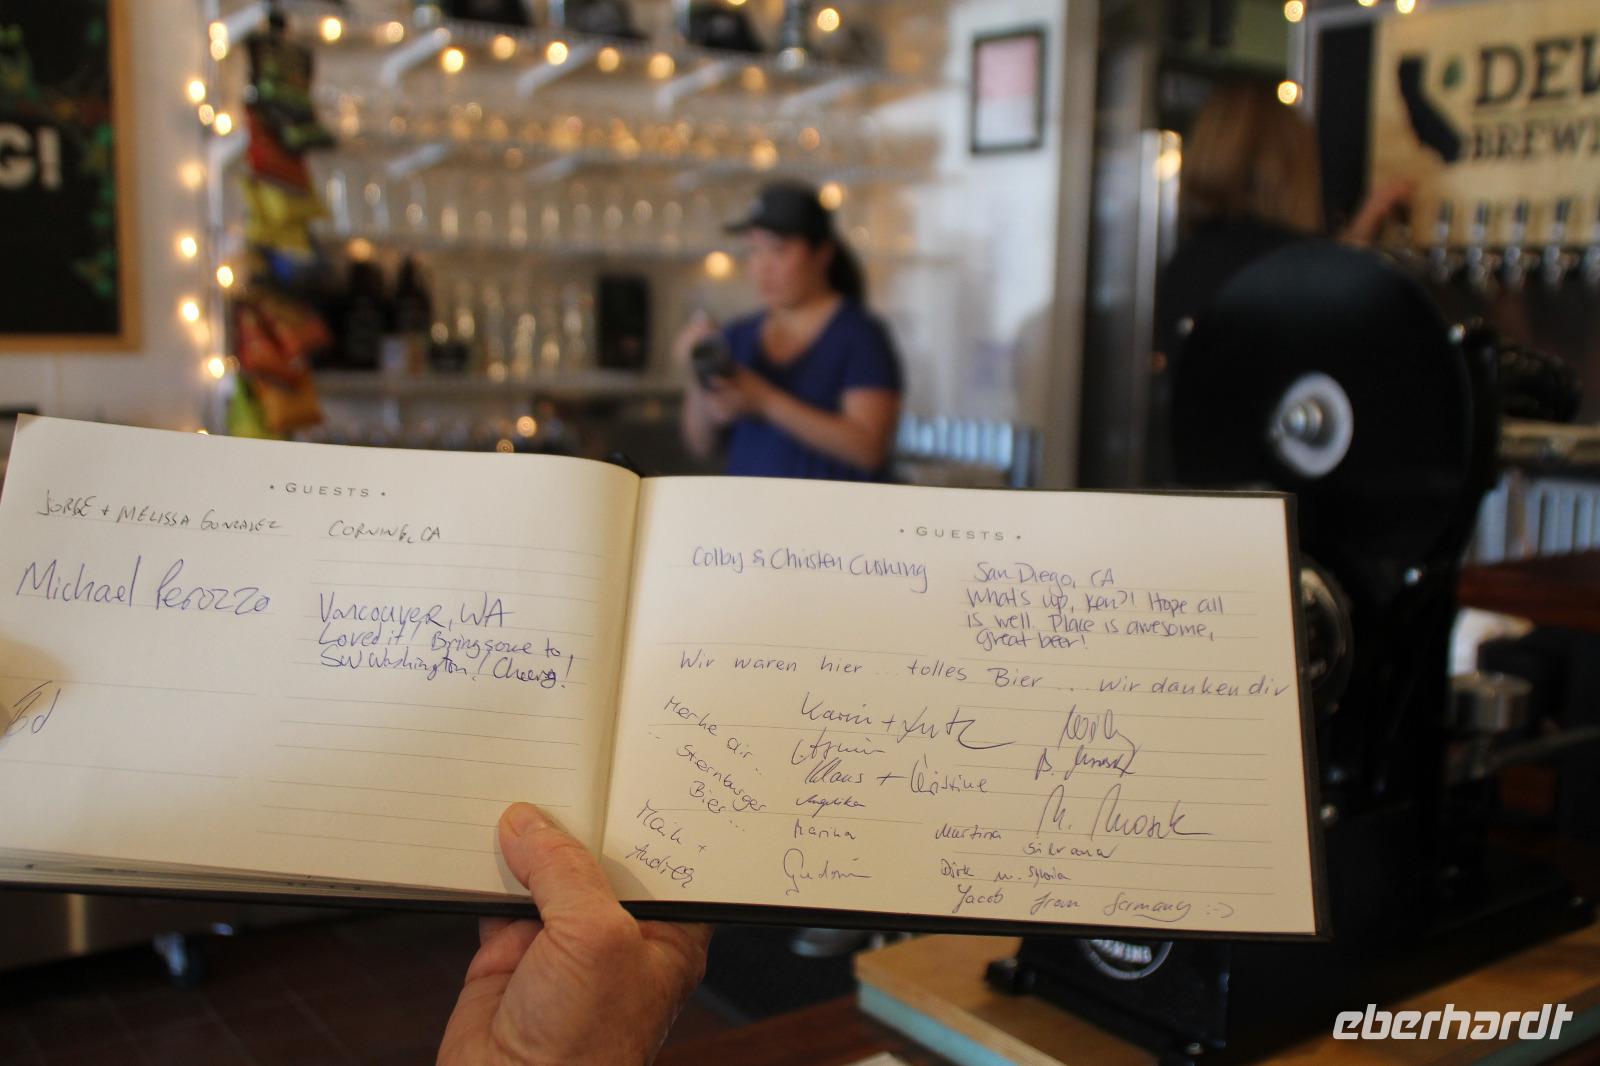 G!
DEV
BREWI
• GUESTS •
JORGE + MELISSA GONZALEZ
CORNING, CA
Michael Perozzo
Vancouver, WA
Loved it! Bring some to
SW Washington! Cheers!
Ed
• GUESTS •
Colby & Christen Cushing
San Diego, CA
What's up, Ken?! Hope all
is well. Place is awesome,
great beer!
Wir waren hier ... tolles Bier ... wir danken dir
Merke dir ..
.. Sternburger
Bier ...
Maik +
Andrea
Karin + Lutz
Armin
Klaus + Christine
Angelika
Marina
Gudrun
Martina
Silvana
Dirk u. Sylvia
Jacob from Germany :-)
eberhardt